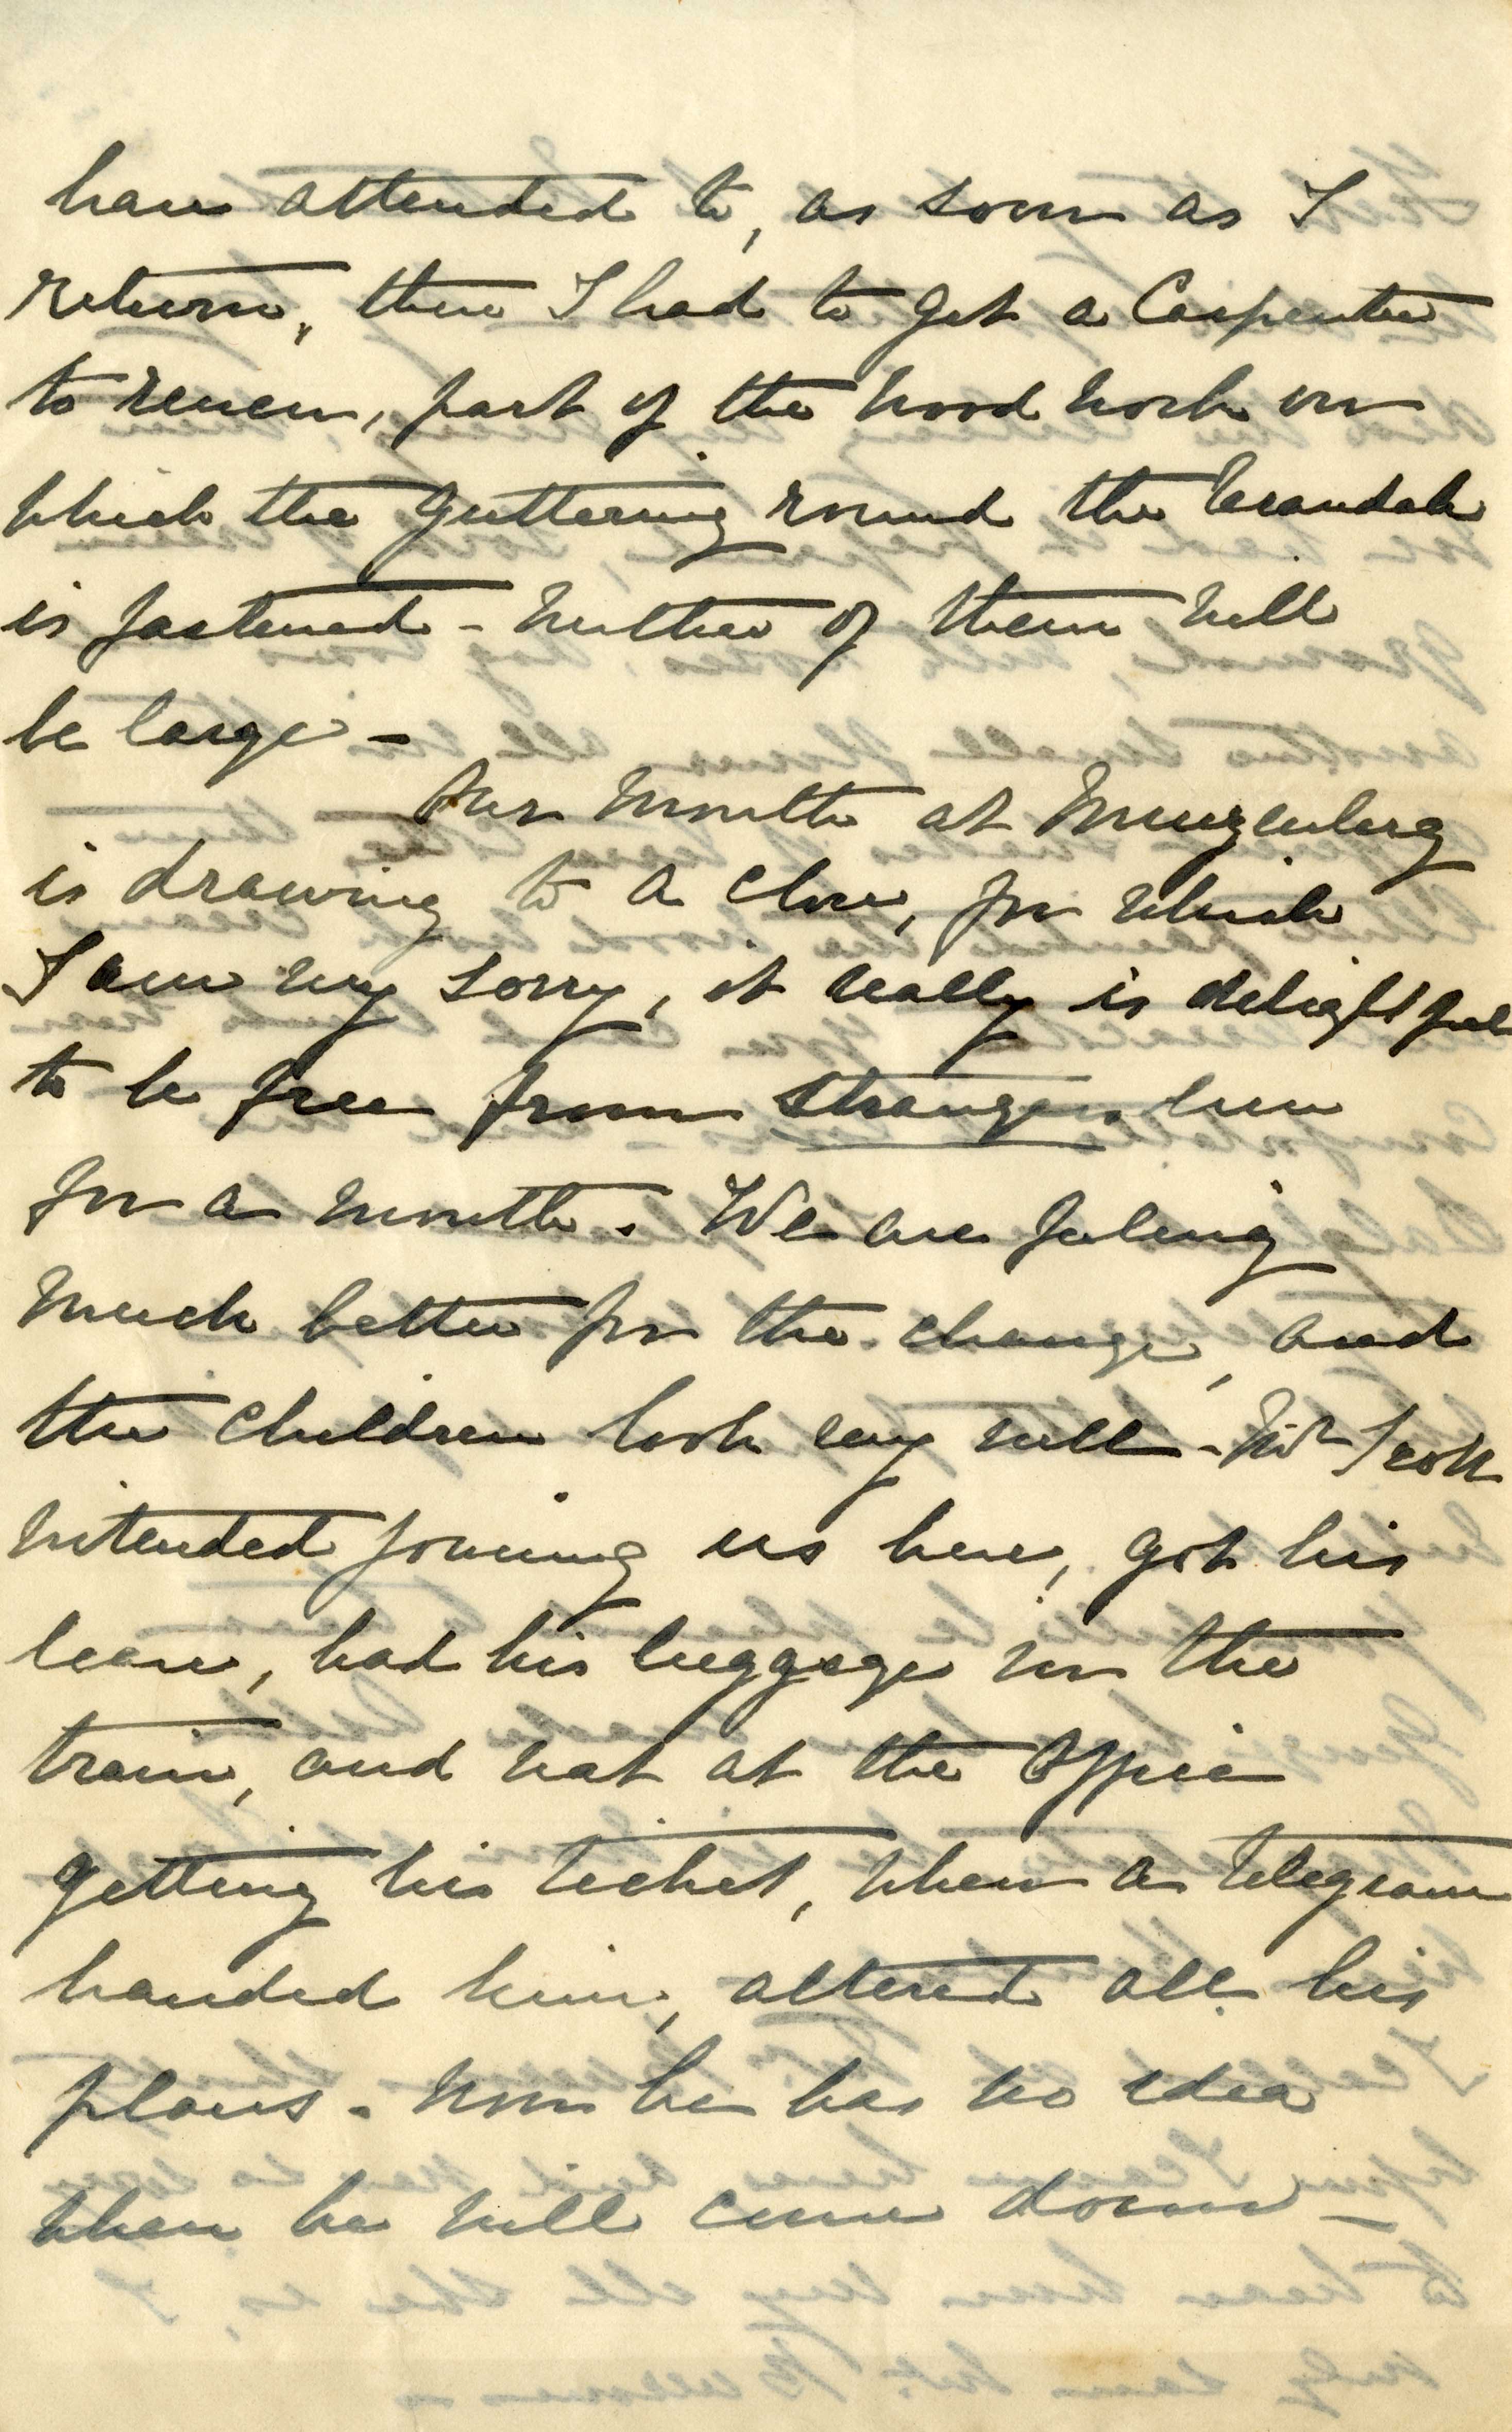 have attended to, as soon as I
return, then I had to get a Carpenter
to renew, part of the wood work on
which the guttering round the Verandah
is fastened - neither of them will
be large -
Our month at Muizenberg
is drawing to a close, for which
I am very sorry, it really is delightful
to be free from strangers even
for a month. We are feeling
much better for the change, and
the children look very well - Mr Scott
intended joining us here, got his
leave, had his luggage in the
train, and was at the Office
getting his ticket, when a telegram
handed him, altered all his
plans - Now he has no idea
when he will come down -